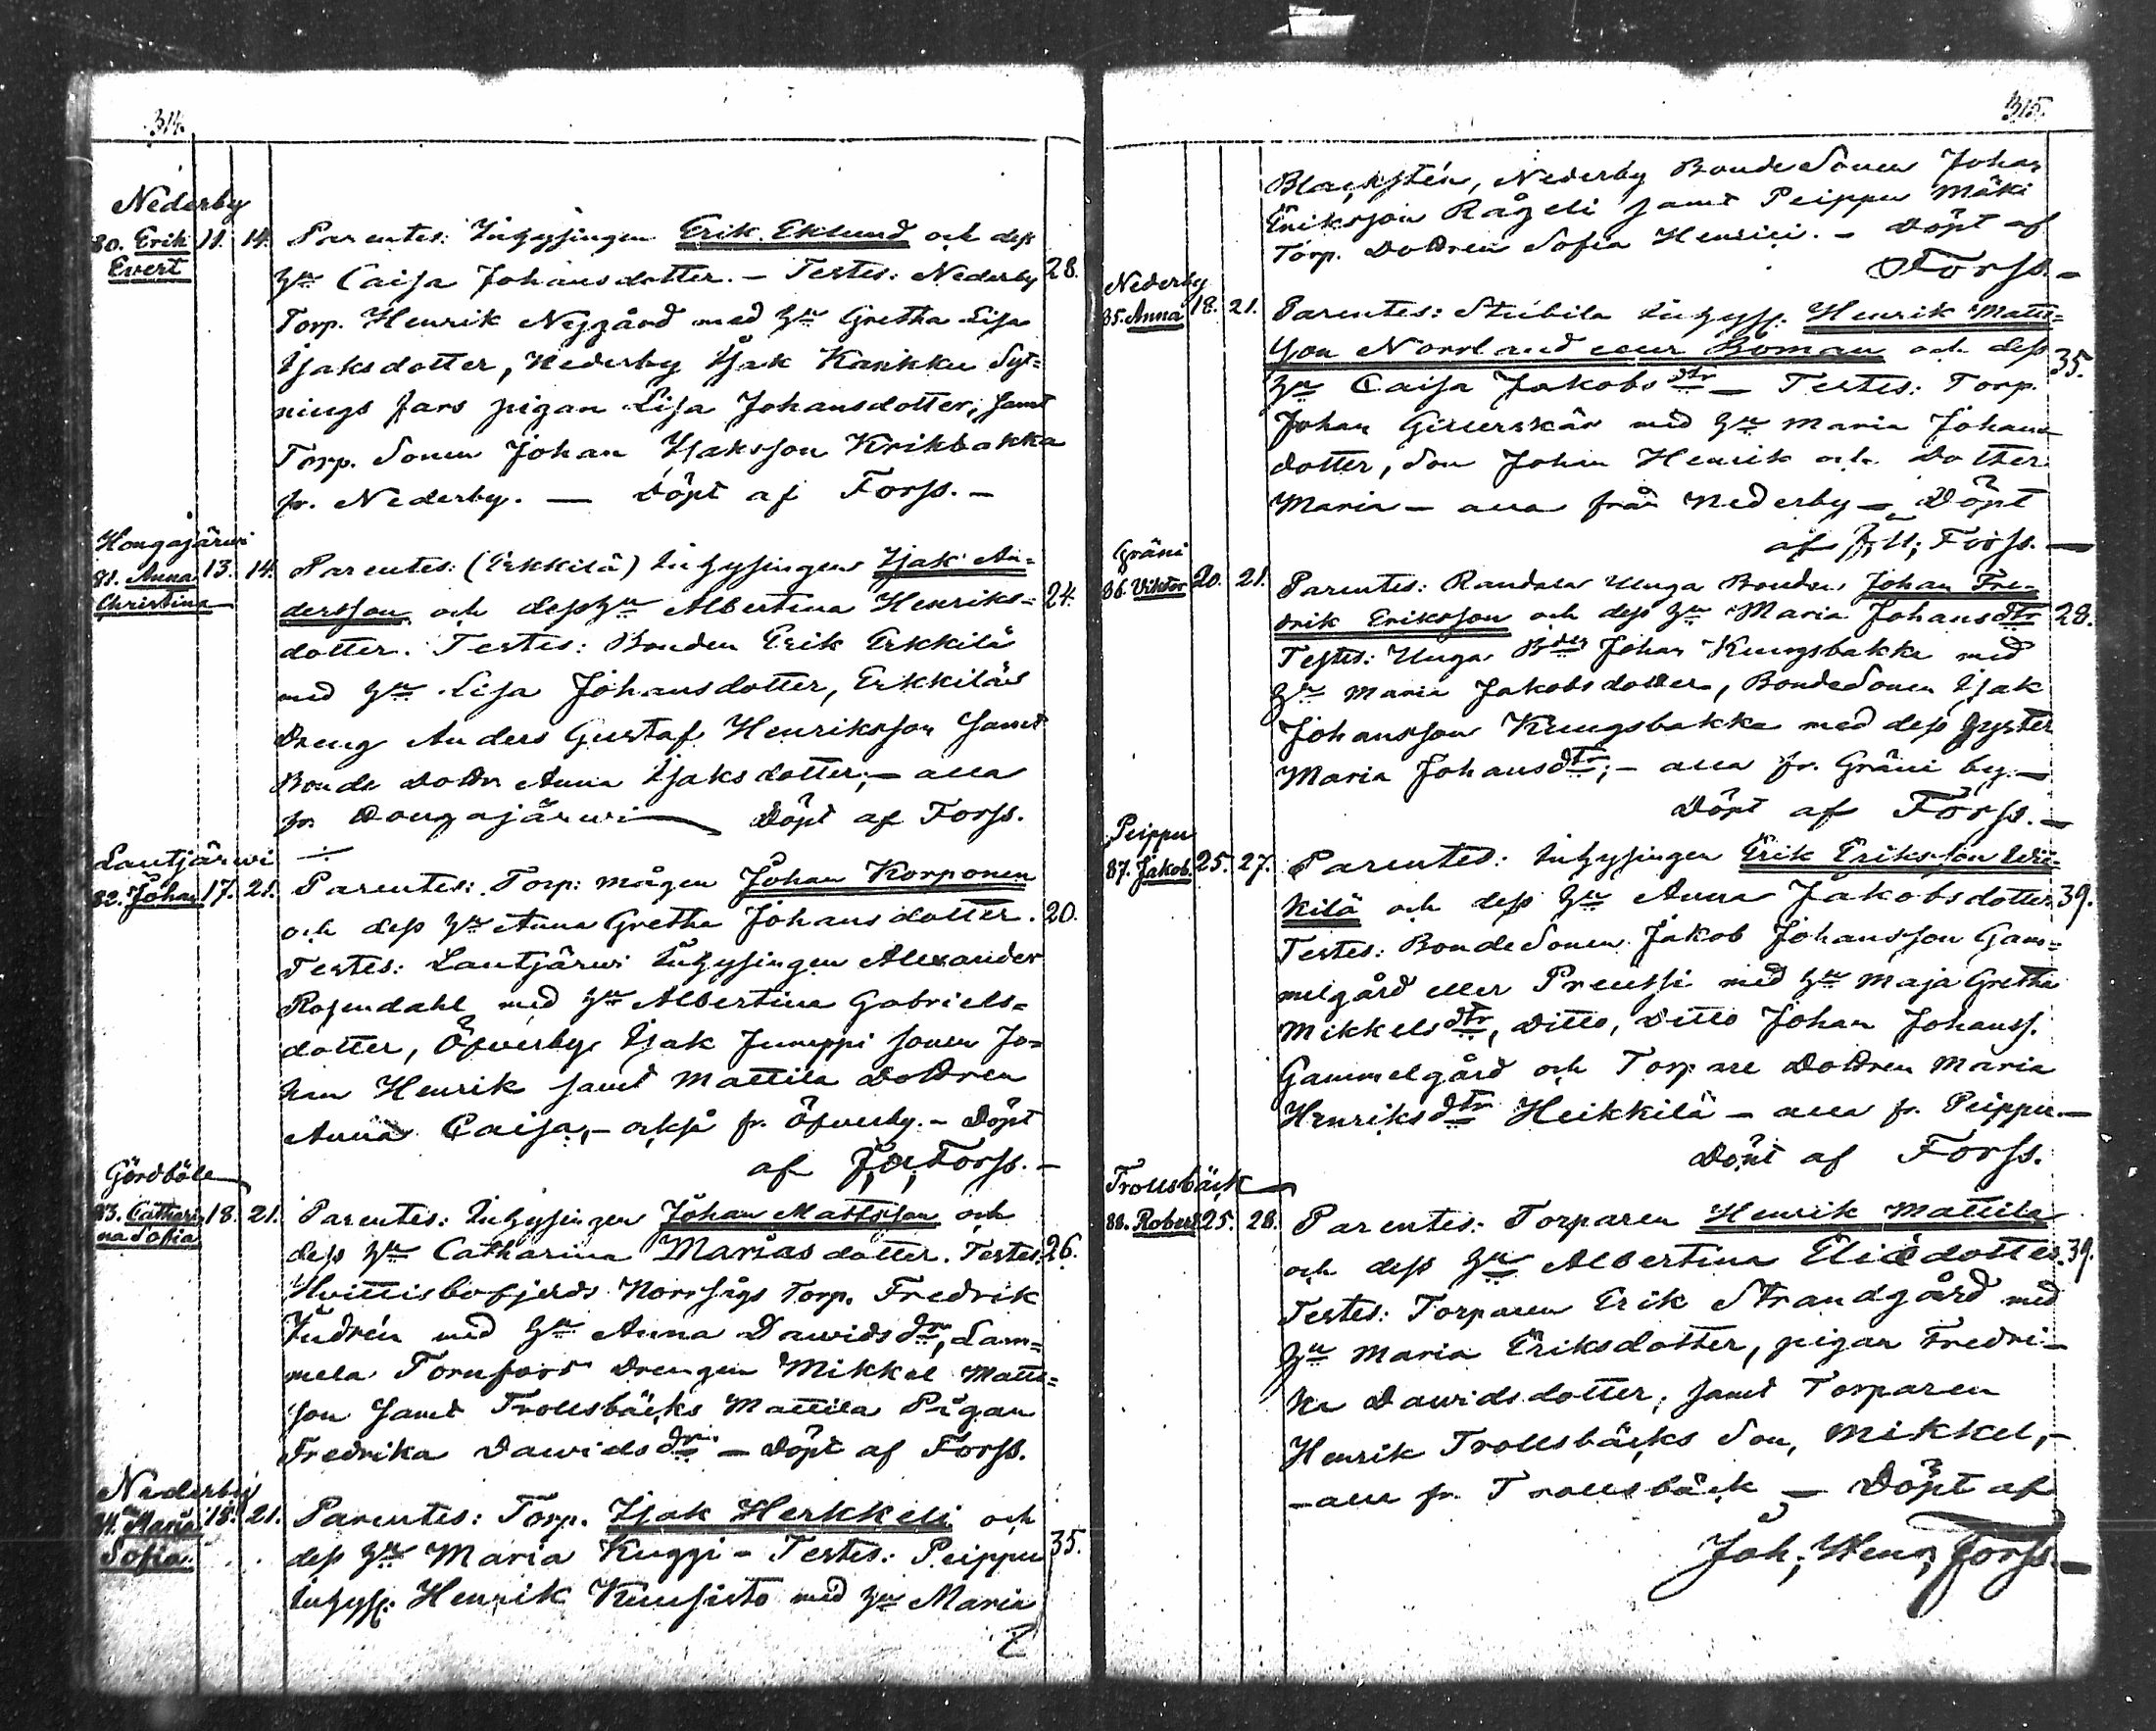 314.
Nederby
80. Erik 11. 14. Parentes: Inhysingen Erik Eklund och dess
Evert
Hu Caisa Johansdotter. - Testes: Nederby 28.
Torp. Henrik Nygård med Hu Gretha Lisa
Isaksdotter, Nederby Isak Karikku Syt=
nings fars pigan Lisa Johansdotter, samt
Torp. Sonen Johan Isaksson Krikbakka
fr. Nederby. — Döpt af Forss. -
Hongajärwi
81. Anna 13. 14. Parentes: (Erkkilä) Inhysingen Isak An=
Christina
dersson och dess Hu Albertina Henriks= 24.
dotter. Testes: Bonden Erik Erkkilä
med Hu Lisa Johansdotter, Erkkiläs
Dreng Anders Gustaf Henriksson samt
Bonde Dottr Anna Isaksdotter; - alla
fr. Dongajärwi — Döpt af Forss.
Lautjärwi
82. Johan 17. 21. Parentes: Torp: mågen Johan Korponen
och dess Hu Anna Gretha Johansdotter. 20.
Testes: Lautjärwi Inhysingen Alexander
Rosendahl med Hu Albertina Gabriels=
dotter, Öfverby Isak Jumppi sonen Jo=
han Henrik samt Mattila Dottren
Anna Caisa, - också fr. Öfverby. - Döpt
af J, H, Forss. -
Gördböle
83. Cathari 18. 21. Parentes: Inhysingen Johan Mattsson och
na Sofia
dess Hu Catharina Mariasdotter. Testes: 26.
Hvittisbofjerds Norrhägs Torp. Fredrik
Indrén med Hu Anna Dawidsdr, Lam=
mela Tornfors Drengen Mikkel Matts=
son samt Trollsbäcks Mattila Pigan
Fredrika Dawidsdr - Döpt af Forss.
Nederby
84. Maria 18. 21. Parentes: Torp. Isak Herkkeli och
Sofia.
dess Hu Maria Kuggi - Testes: Peippu 35.
Inhys. Henrik Kuusisto med Hu Maria
315.
Blackstén, Nederby Bonde Sonen Johan
Eriksson Rågeli samt Peippu Mäki
Torp. Dottren Sofia Henrici. - Döpt af
Forss. -
Nederby
85. Anna 18. 21. Parentes: Stubila Inhyss. Henrik Matts=
son Norrland eller Boman och dess 35.
Hu Caisa Jakobsdtr - Testes: Torp.
Johan Girerskär med Hu Maria Johans
dotter, Son Johan Henrik och Dotter
Maria - alla från Nederby - Döpt
af J, H, Forss. —
Gräni
86. Viktor 20. 21. Parentes: Randala Unga Bonden Johan Fre=
drik Eriksson och dess Hu Maria Johansdtr 28.
Testes: Unga Bden Johan Kungsbakka med
Hu Maria Jakobsdotter, Bonde Sonen Isak
Johansson Kungsbakka med dess Syster
Maria Johansdtr; - alla fr. Gräni by. —
Döpt af Forss. —
Peippu
87. Jakob. 25. 27. Parentes: Inhysingen Erik Eriksson Wii=
kilä och dess Hu Anna Jakobsdotter 39.
Testes: Bonde Sonen Jakob Johansson Gam=
melgård eller Preussi med Hu Maja Gretha
Mikkelsdtr, Ditto, Ditto Johan Johanss.
Gammelgård och Torpare Dottren Maria
Henriksdtr Heikkilä - alla fr. Peippu. —
Döpt af Forss.
Trollsbäck
88. Robert 25. 28. Parentes: Torparen Henrik Mattila
och dess Hu Albertina Eliedotter. 39.
Testes: Torparen Erik Strandgård med
Hu Maria Eriksdotter, pigan Fredri-
ka Dawidsdotter, samt Torparen
Henrik Trollsbäcks Son, Mikkel, -
- alla fr. Trollsbäck - Döpt af
Joh; Henr; Forss. —